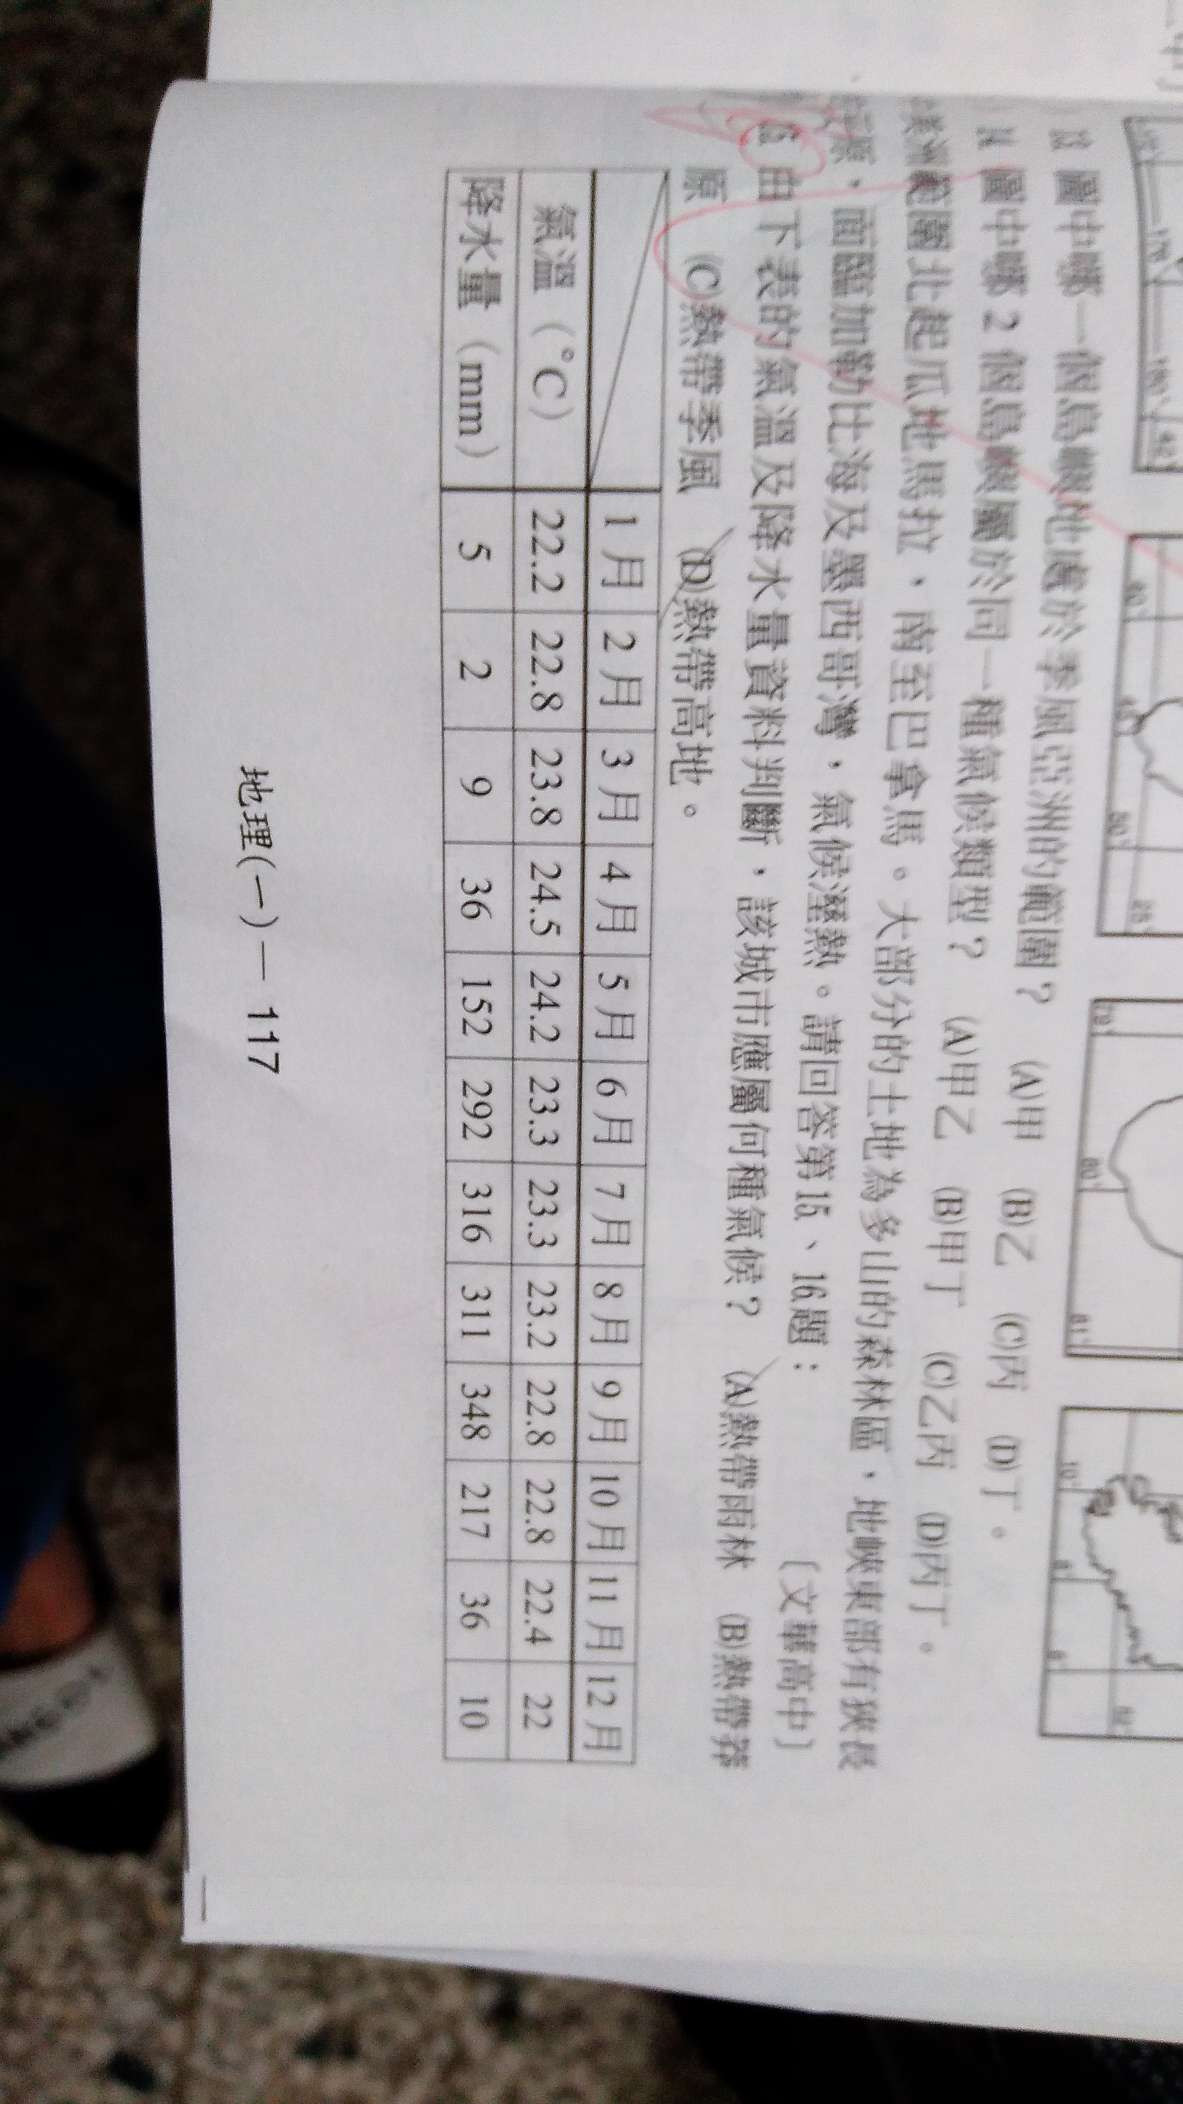 13. 圖中哪一個島嶼地處於季風亞洲的範圍？ (A)甲 (B)乙 (C)丙 (D)丁。
14. 圖中哪 2 個島嶼屬於同一種氣候類型？ (A)甲乙 (B)甲丁 (C)乙丙 (D)丙丁。
美洲範圍北起瓜地馬拉，南至巴拿馬。大部分的土地為多山的森林區，地峽東部有狹長
平原，面臨加勒比海及墨西哥灣，氣候溼熱。請回答第 15.、16.題：
〔文華高中〕
由下表的氣溫及降水量資料判斷，該城市應屬何種氣候？ (A)熱帶雨林 (B)熱帶莽
原 (C)熱帶季風 (D)熱帶高地。
1 月 2 月 3 月 4 月 5 月 6 月 7 月 8 月 9 月 10 月 11 月 12 月
氣溫（°C） 22.2 22.8 23.8 24.5 24.2 23.3 23.3 23.2 22.8 22.8 22.4 22
降水量（mm） 5 2 9 36 152 292 316 311 348 217 36 10
地理(一)－117